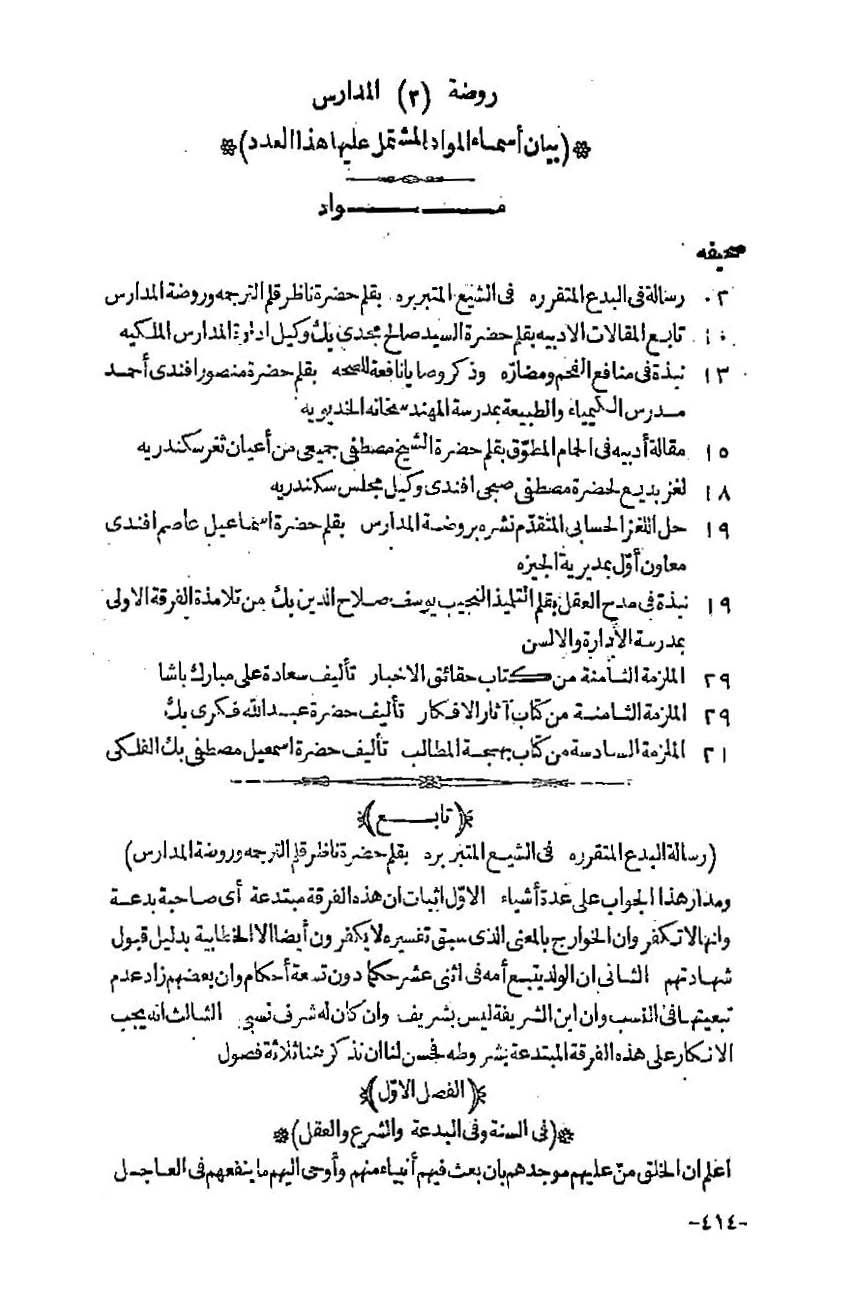 روضة (٣) المدارس
(بيان أسماء المواد المشتمل عليها هذا العدد)
مواد
صحيفه
٠٣ رسالة فى البدع المتقرره فى الشيع المتبربره بقلم حضرة ناظر قلم الترجمه وروضة المدارس
١٠ تابع المقالات الادبيه بقلم حضرة السيد صالح مجدى بك وكيل ادارة المدارس الملكيه
١٣ نبذة فى منافع الفحم ومضارّه وذكر وصايا نافعة للصحه بقلم حضرة منصور افندى أحمد
مدرس الكيمياء والطبيعة بمدرسة المهندسخانه الخديويه
١٥ مقالة أدبيه فى الحمام المطوّق بقلم حضرة الشيخ مصطفى جميعى من أعيان ثغر سكندريه
١٨ لغز بديع لحضرة مصطفى صبحى افندى وكيل مجلس سكندريه
١٩ حل اللغز الحسابى المتقدّم نشره بروضة المدارس بقلم حضرة اسماعيل عاصم افندى
معاون أوّل بمديرية الجيزه
١٩ نبذة فى مدح العقل بقلم التلميذ النجيب يوسف صلاح الدين بك من تلامذة الفرقة الاولى
بمدرسة الأدارة والالسن
٢٩ الملزمة الثامنة من كتاب حقائق الاخبار تأليف سعادة على مبارك باشا
٢٩ الملزمة الثامنة من كتاب آثار الافكار تأليف حضرة عبد الله فكرى بك
٢١ الملزمة السادسة من كتاب بهجة المطالب تأليف حضرة اسمعيل مصطفى بك الفلكى
(تابع)
(رسالة البدع المتقرره فى الشيع المتبربره بقلم حضرة ناظر قلم الترجمه وروضة المدارس)
ومدار هذا الجواب على عدة أشياء الاوّل اثبات ان هذه الفرقة مبتدعة أى صاحبة بدعة
وانها لا تكفر وان الخوارج بالمعنى الذى سبق تفسيره لا يكفرون أيضا الا الخطابية بدليل قبول
شهادتهم الثانى ان الولد يتبع أمه فى اثنى عشر حكما دون تسعة أحكام وان بعضهم زاد عدم
تبعيتها فى النسب وان ابن الشريفة ليس بشريف وان كان له شرف نسبى الثالث انه يجب
الانكار على هذه الفرقة المبتدعة بشروطه فحسن لنا ان نذكر هنا ثلاثة فصول
(الفصل الاوّل)
(فى السنة وفى البدعة والشرع والعقل)
اعلم ان الخلق منّ عليهم موجدهم بان بعث فيهم أنبياء منهم وأوحى اليهم ما ينفعهم فى العاجل
-٤١٤-